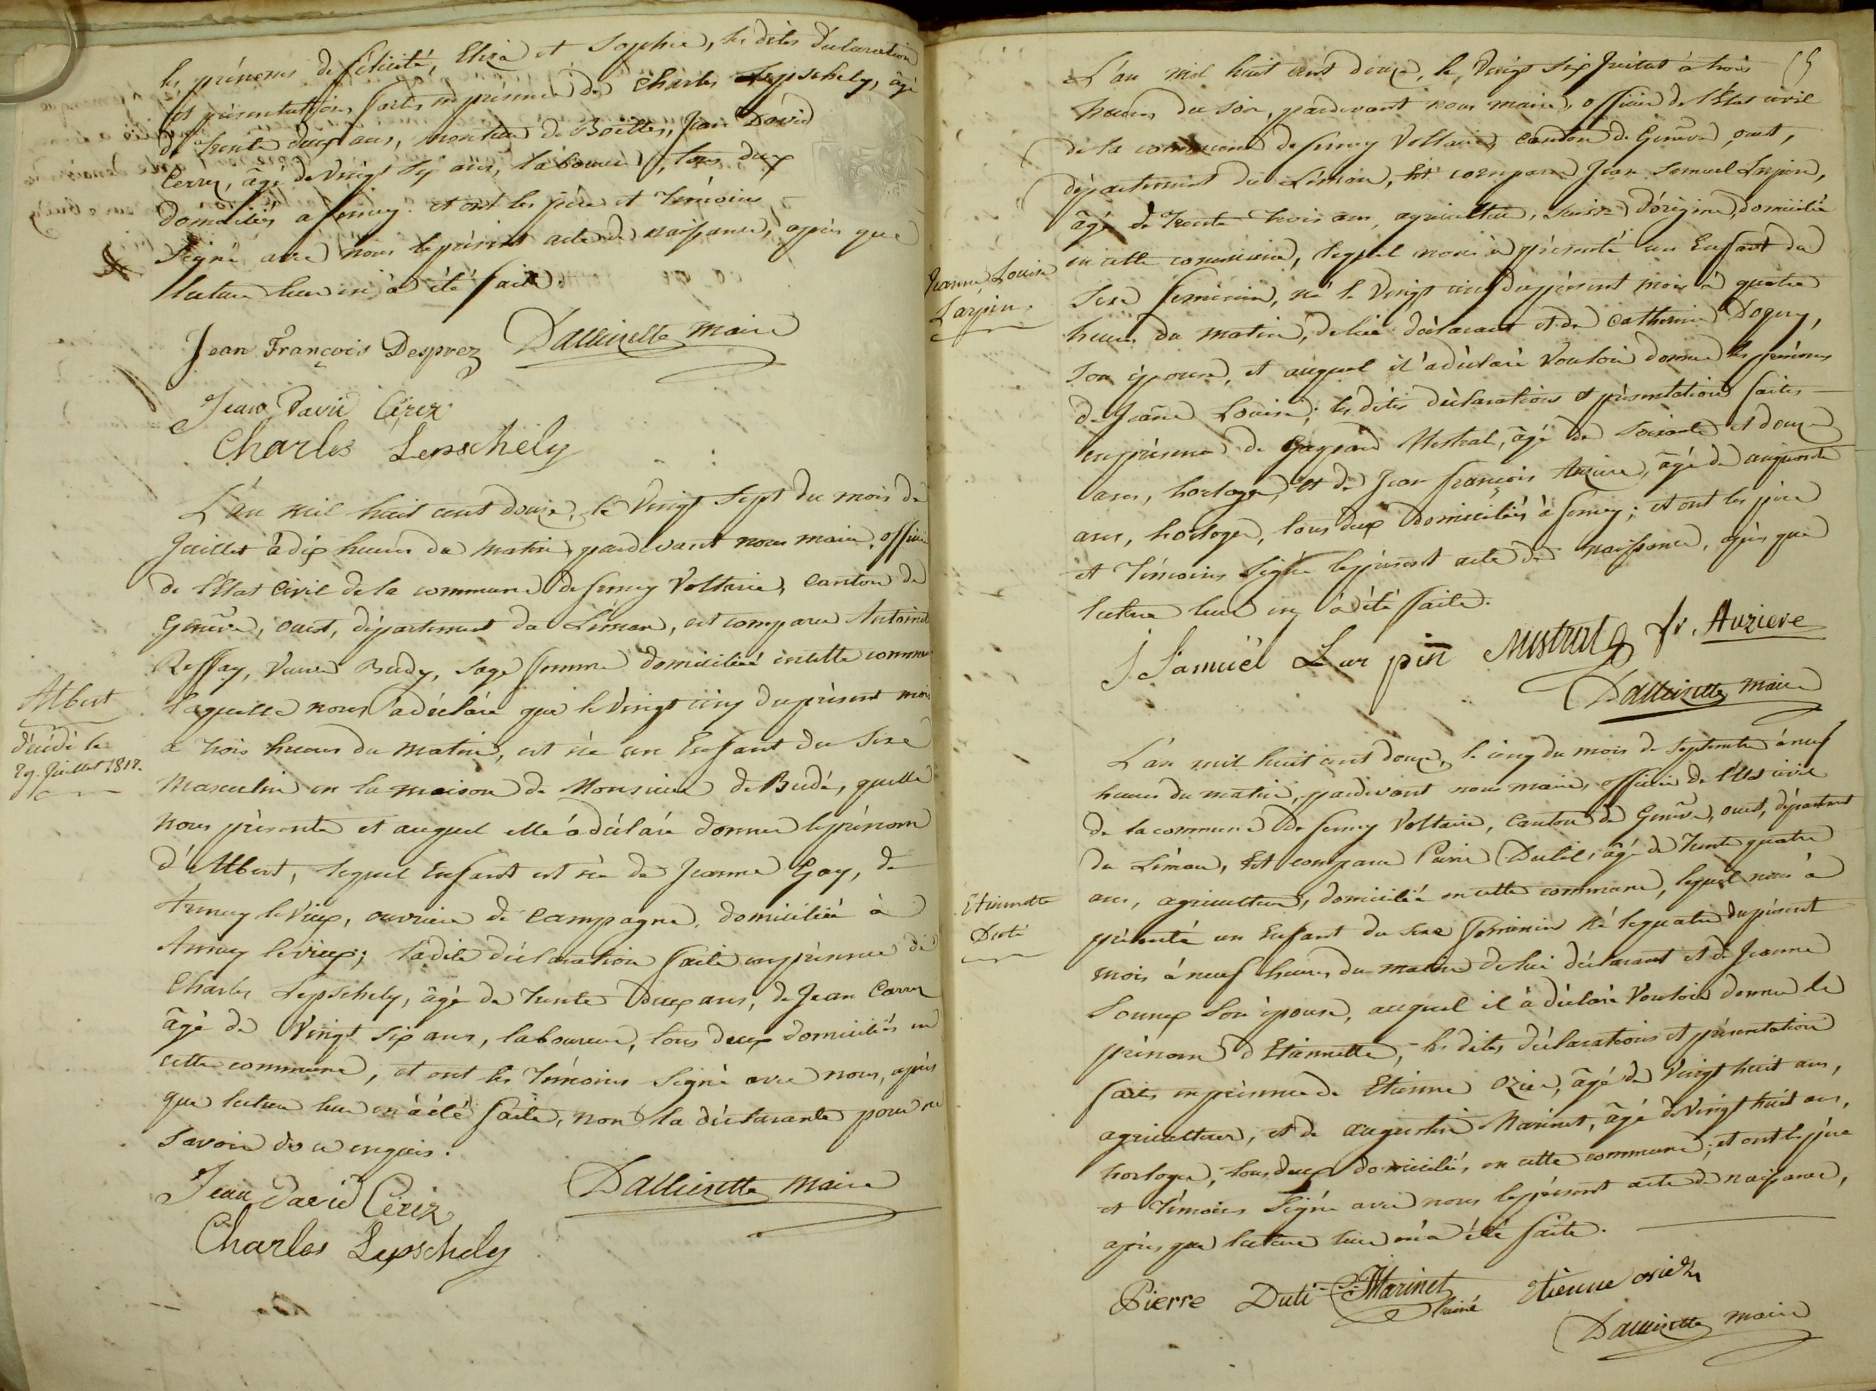 les prénoms de félicité, Eliza et Sophie, les dites déclaration
et présentation faites en présence de Charles Lepschely, âgé
de trente deux ans, monteur de Boëttes, Jean David
Cerez, âgé de vingt six ans, laboureur, tous deux
domiciliés a ferney. et ont les père et Témoins
Signé avec nous le présent acte de naissance, après que
lecture leur en à été faite.
Jean François Desprez Dallizette maire
Jean David Cérez
Charles Lepschély
L'an mil huit cent douze, le vingt sept du mois de
Juillet à dix heures du matin, pardevant nous maire, officier
de l'Etat civil de la commune de ferney Voltaire, canton de
Genève, ouest, département du Léman, est comparue Antoinette
Reffay, Veuve Budy, sage femme domiciliée en cette commune
laquelle nous a déclaré que le vingt cinq du présent mois
a trois heures du matin, est né un Enfant du Sexe
Masculin en la maison de Monsieur de Budé, quelle
nous présente et auquel elle a déclaré donner le prénom
d'Albert, lequel Enfant est né de Jeanne Gay, de
Annecy le Vieux, ouvriere de campagne, domiciliée à
Annecy le vieux; ladite déclaration faite en présence de
Charles Lepschely, âgé de trente deux ans, de Jean Carrez
âgé de vingt six ans, laboureur, tous deux domiciliés en
cette commune, et ont les Témoins Signé avec nous, après
que lecture leur en à été faite, non la déclarante pour ne
Savoir de ce enquis.
Jean David Cérez Dallizette maire
Charles Lepschely
Albert
décédé le
29. Juillet 1812.
15
L'an mil huit cent douze, le vingt six Juillet à trois
heures du soir, pardevant nous maire, officier de l'Etat civil
de la commune de ferney Voltaire, canton de Genève, ouest,
département du Léman, Est comparu Jean Samuel Larpin,
âgé de trente trois ans, agriculteur, suisse d'origine, domicilié
en cette commune, lequel nous à présenté un Enfant du
Sexe féminin, né le vingt cinq du présent mois à quatre
heures du matin, de lui déclarant et de Catherine Doguy,
Son épouse, et auquel il a déclaré vouloir donner les prénoms
de Jeanne Louise; les dites déclarations et présentation faites
en présence de Gaspard Mestral, âgé de soixante et douze
ans, horloger, et de Jean françois Auziere, âgé de cinquante
ans, horloger, tous deux domiciliés à ferney; et ont les père
et Témoins Signé le présent acte de naissance, après que
lecture leur en à été faite.
J Samuël Larpin Mistral fr. Auziere
Dallizette maire
Jeanne Louise
Larpin.
L'an mil huit cent douze, le cinq du mois de septembre à neuf
heures du matin, pardevant nous maire, officier de l'Etat civil
de la commune de ferney Voltaire, canton de Genève, ouest, département
du Léman, Est comparu Pierre Dutil, âgé de trente quatre
ans, agriculteur, domicilié en cette commune, lequel nous à
présenté un Enfant du sexe féminin né le quatre du présent
mois à neuf heures du matin de lui déclarant et de Jeanne
Souneux Son épouse, auquel il à déclaré vouloir donner le
prénom d'Etiennette, les dites déclarations et présentation
faites en présence de Etienne Ozier, âgé de vingt huit ans,
agriculteur, et de augustin Marinet, âgé de vingt huit ans,
horloger, tous deux domiciliés en cette commune; et ont le père
et Témoins Signé avec nous le présent acte de naissance,
après que lecture leur en à été faite.
Pierre Duti Marinet l'ainé Etienne osier
Dallizette maire
Etiennette
Duti